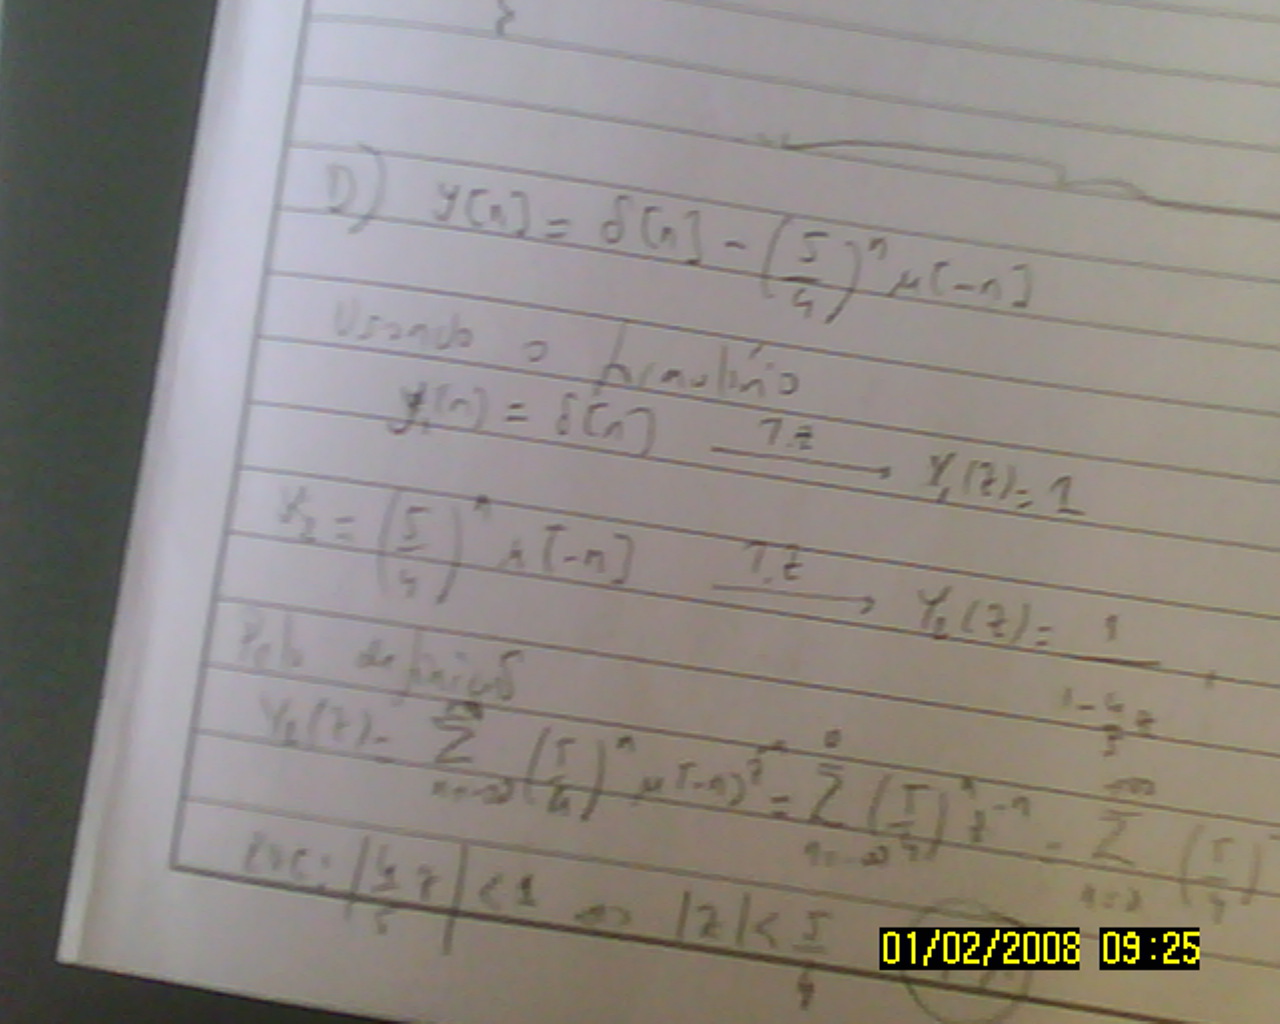 D) y[n] = δ[n] - (5/4)^n μ[-n]
Usando o
y₁[n] = δ[n] T.Z → Y₁(z) = 1
Y₂ = (5/4)^n μ[-n] T.Z → Y₂(z) = 1/(1 - 4/5 z)
Pela definição
Y₂(z) = Σ_{n=-∞}^{∞} (5/4)^n μ[-n] z^{-n} = Σ_{n=-∞}^{0} (5/4)^n z^{-n} = Σ (5/4)
RDC: |4/5 z| < 1 ⇔ |z| < 5/4
01/02/2008 09:25